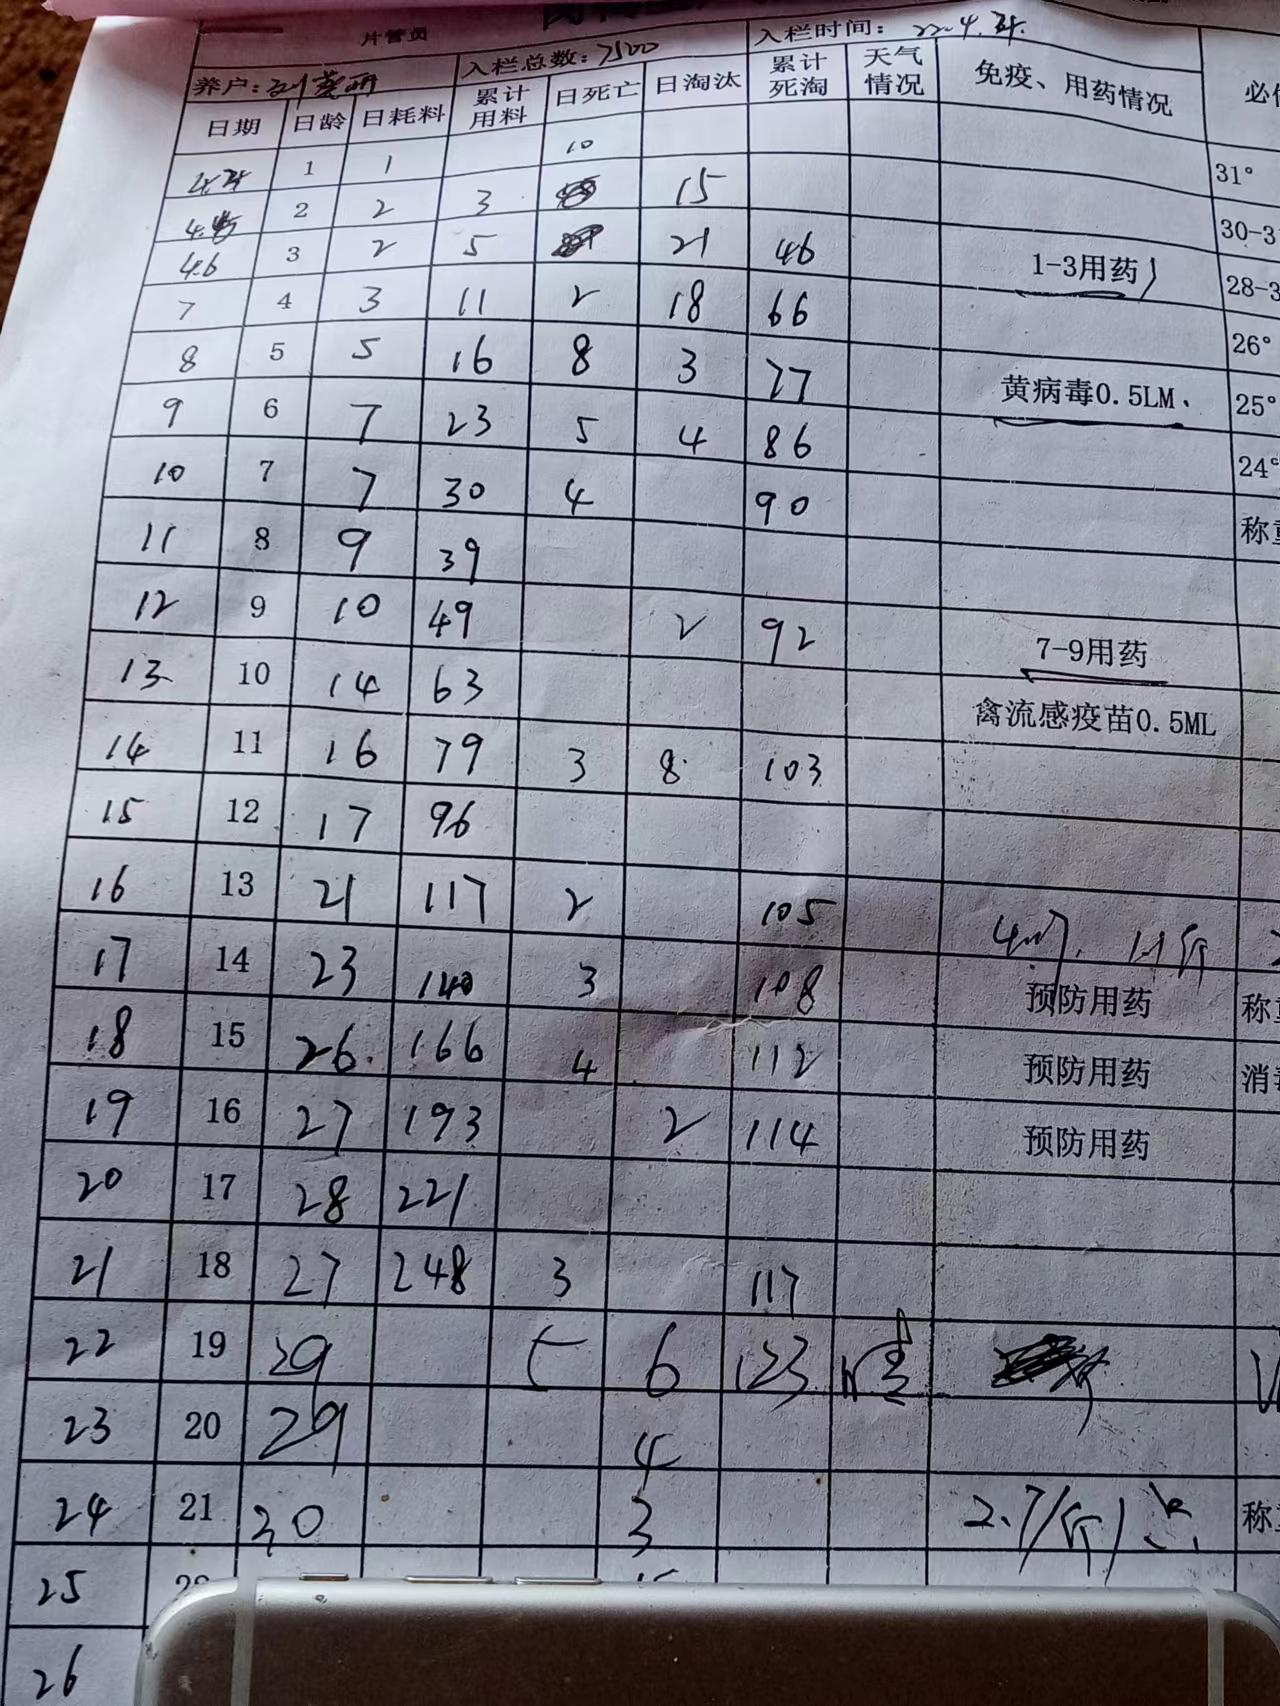 片管员
养户: 入栏总数: 7500 入栏时间: 22.4.
日期 日龄 日耗料 累计用料 日死亡 日淘汰 累计死淘 天气情况 免疫、用药情况
1 1 10 31°
2 2 3 15 30-3
4.6 3 2 5 21 46 1-3用药 28-3
7 4 3 11 2 18 66 26°
8 5 5 16 8 3 77 黄病毒0.5LM、 25°
9 6 7 23 5 4 86 24°
10 7 7 30 4 90
11 8 9 39
12 9 10 49 2 92 7-9用药
13 10 14 63 禽流感疫苗0.5ML
14 11 16 79 3 8 103
15 12 17 96
16 13 21 117 2 105
17 14 23 140 3 108 预防用药
18 15 26 166 4 112 预防用药
19 16 27 193 2 114 预防用药
20 17 28 221
21 18 27 248 3 117
22 19 29 5 6 123 晴
23 20 29 4
24 21 30 3 2.7/斤
25
26